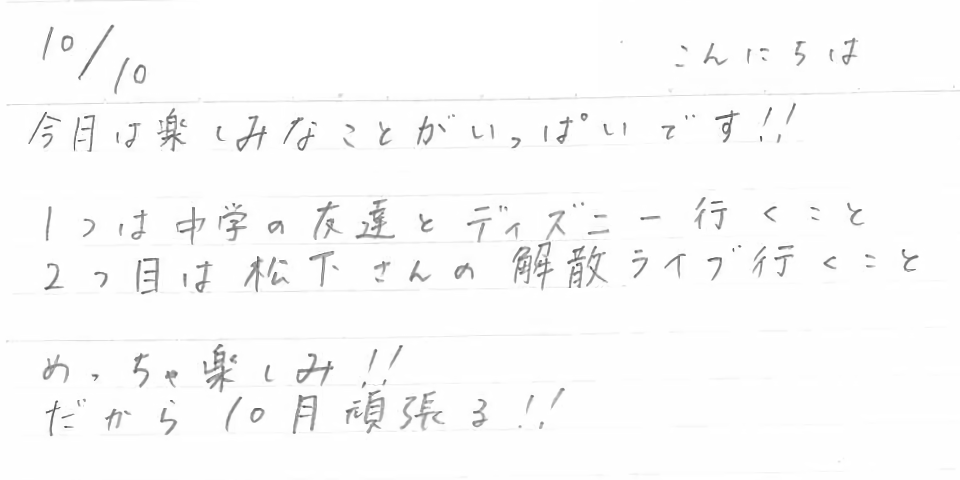 10/10 こんにちは
今月は楽しみなことがいっぱいです!!
1つは中学の友達とディズニー行くこと
2つ目は松下さんの解散ライブ行くこと
めっちゃ楽しみ!!
だから10月頑張る!!